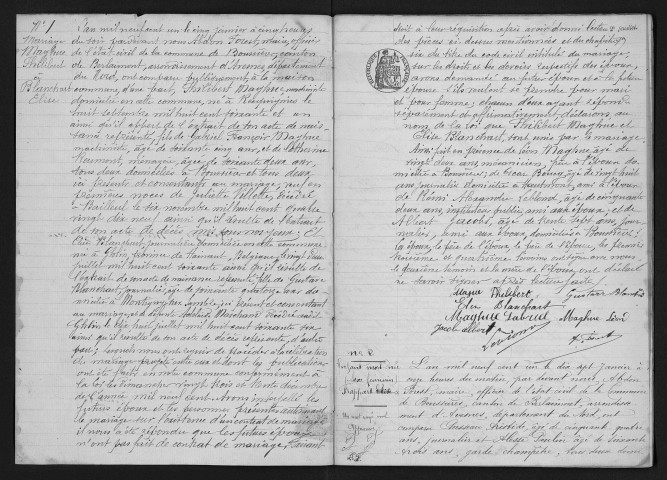 N° 1
Mariage
Maghue
Philibert
et
Blanchart
Elise
L'an mil neuf cent un le cinq janvier à cinq heures
du soir par devant nous Abdon Forest, maire, officier
de l'état civil de la commune de Boussières canton
de Berlaimont, arrondissement d'Avesnes, département
du Nord, ont comparu publiquement à la maison
commune, d'une part, Philibert Maghue, machiniste
domicilié en cette commune, né à
huit septembre mil huit cent soixante et un
ainsi qu'il résulte de l'extrait de son acte de nais-
sance représenté, fils de Gabriel François Maghue
machiniste, âgé de soixante cinq ans, et de Catherine
ménagère, âgée de soixante deux ans,
tous deux domiciliés à Boussières et tous deux
ici présents et consentant au mariage, veuf en
premières noces de Juliette décédée
à le six novembre mil huit cent quatre
vingt dix neuf ainsi qu'il résulte de l'extrait
de son acte de décès
Elise Blanchart journalière domiciliée en cette commune
née à Ghlin, Hainaut, Belgique, le vingt deux
juillet mil huit cent soixante ainsi qu'il résulte de
l'extrait de son acte de naissance représenté, fille de Gustave
Blanchart, journalier, âgé de soixante quatorze ans do-
micilié à Montignies ici présent et consentant
au mariage, et de défunte décédée
Ghlin le dix huit juillet mil huit cent soixante six
ainsi qu'il résulte de son acte de décès représenté, d'autre
part; lesquels nous ont requis de procéder à la célébration
du mariage projeté entre eux et dont les publications
ont été faites en notre commune conformément à
la loi les dimanches vingt trois et trente décembre
de l'année mil neuf cent. Avons interpellé les
futurs époux et les personnes présentes autorisant
le mariage sur l'existence d'un contrat de mariage
il nous a été répondu que les futurs époux
n'ont pas fait de contrat de mariage. Faisant
droit à leur réquisition après avoir donné lecture
des pièces ci-dessus mentionnées et du chapitre
six du titre du code civil intitulé du mariage
sur les droits et les devoirs respectifs des époux,
avons demandé au futur époux et à la future
épouse s'ils veulent se prendre pour mari
et pour femme; chacun d'eux ayant répondu
séparément et affirmativement, déclarons, au
nom de la loi que Philibert Maghue et
Elise Blanchart, sont unis par le mariage
Avons fait en présence de Léon Maghue âgé de
vingt deux ans mécanicien, frère à l'époux do-
micilié à Boussières; de Oscar âgé de vingt huit
ans journalier domicilié à Hautmont, ami à l'époux
de Rémi Alexandre Leblond, âgé de cinquante
deux ans, instituteur public ami aux époux, et de
Albert Jacob, âgé de trente sept ans, jour-
nalier, ami aux époux, domiciliés à Boussières;
l'époux, le père de l'époux, le père de l'épouse, les premier
troisième et quatrième témoins ont signé avec nous
le deuxième témoin et la mère de l'époux ont déclaré
ne savoir signer après lecture faite
Mague Philibert Gustave Blanchart
Elise Blanchart
Maghue Gabriel Maghue Léon
Jacob Albert
Forest
N° 2
Enfant mort-né
L'an mil neuf cent un le dix sept janvier à
onze heures du matin, par devant nous, Abdon
Forest, maire, officier de l'état civil de la commune
de Boussières, canton de Berlaimont, arrondisse-
ment d'Avesnes, département du Nord, ont
comparu âgé de cinquante quatre
ans, journalier et âgé de soixante
trois ans, garde champêtre, tous deux domi-